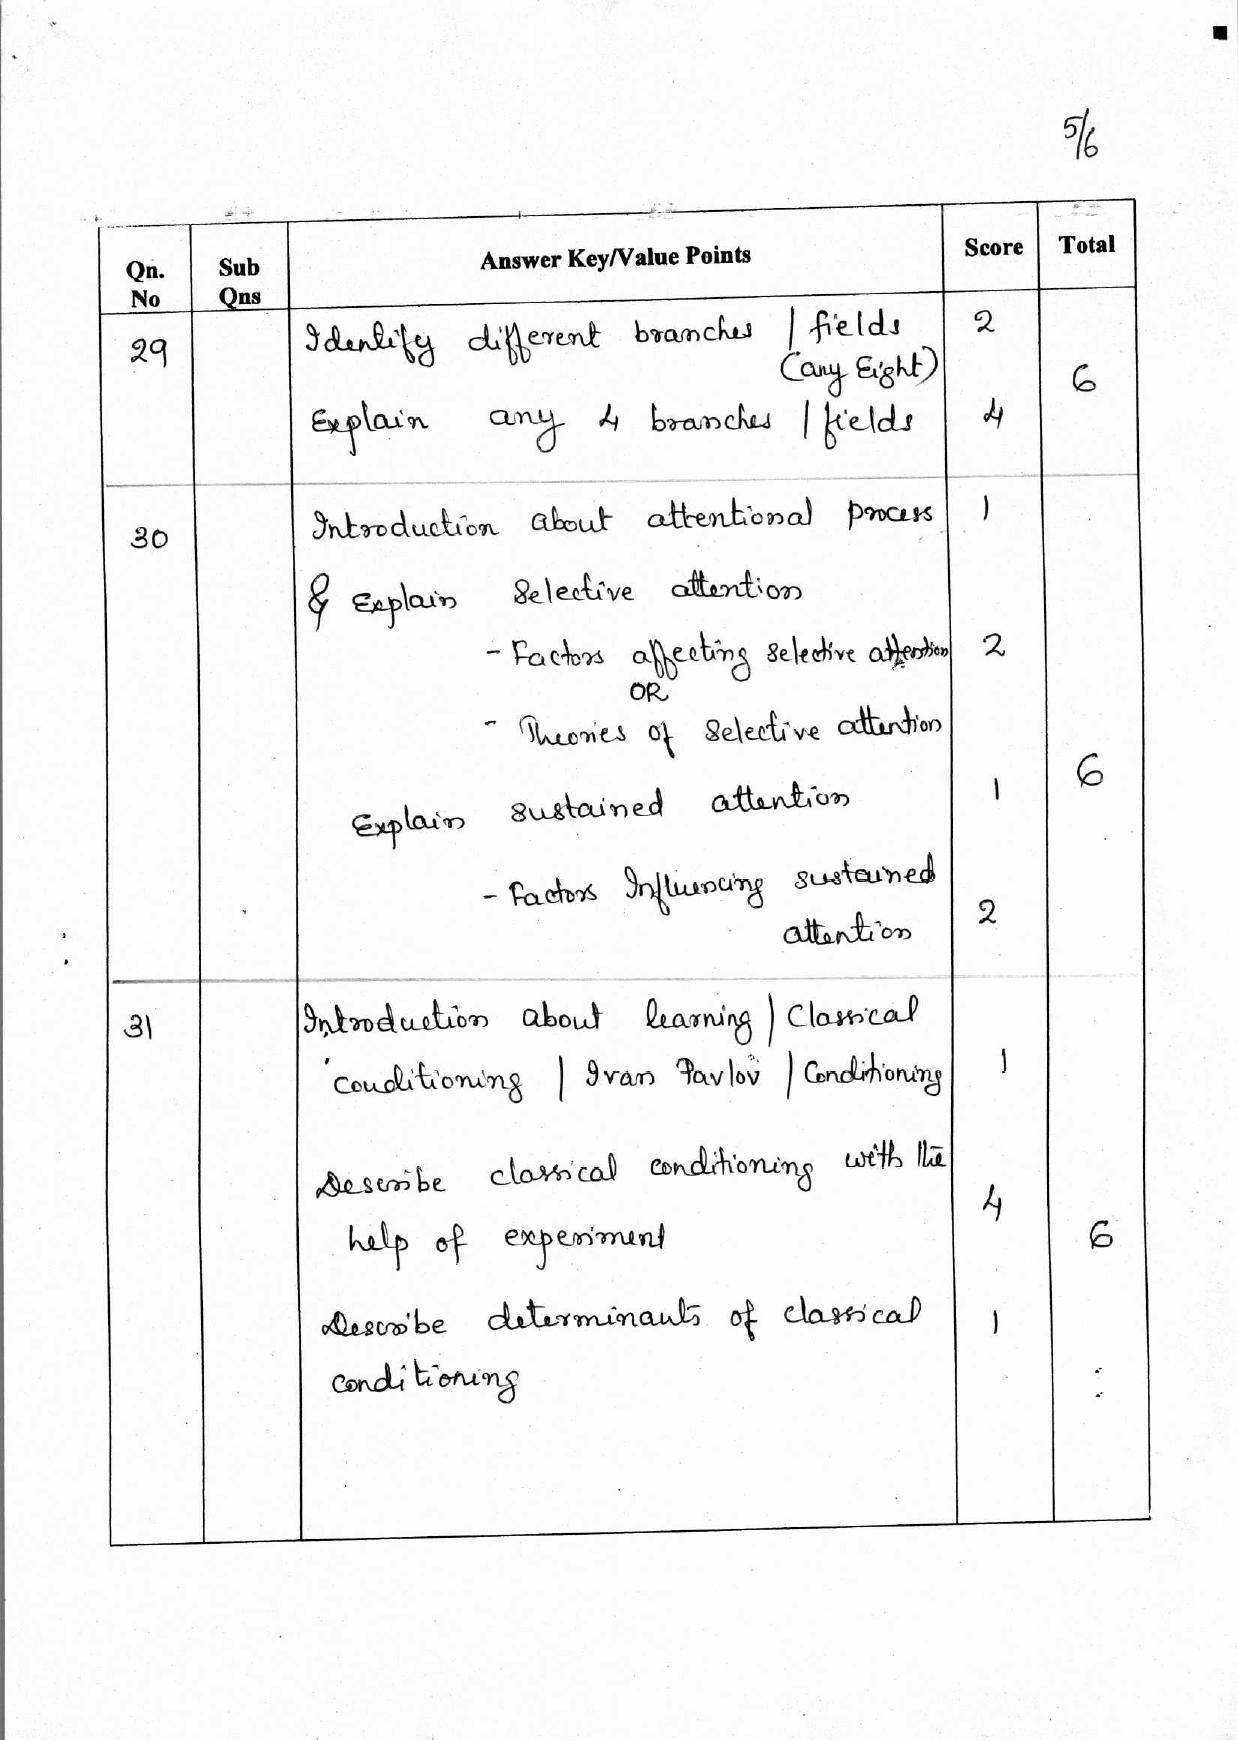 5/6
Qn. No Sub Qns Answer Key/Value Points Score Total
29 Identify different branches / fields 2
(any Eight)
6
Explain any 4 branches / fields 4
30 Introduction about attentional process 1
& Explain Selective attention
- Factors affecting selective attention 2
OR
- Theories of Selective attention
6
Explain sustained attention 1
- Factors Influencing sustained
attention 2
31 Introduction about learning / Classical
conditioning / Ivan Pavlov / Conditioning 1
Describe classical conditioning with the
4
help of experiment 6
Describe determinants of classical 1
conditioning